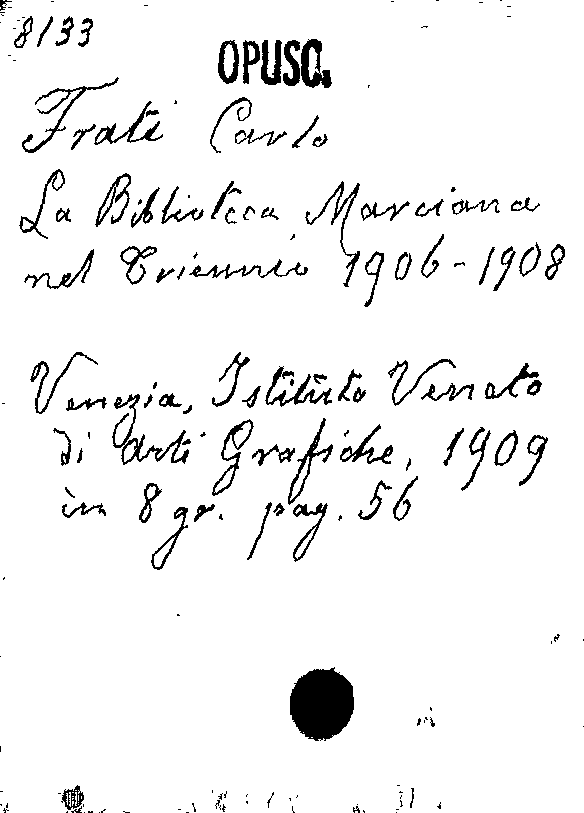 8133
OPUSC.
Frati Carlo
La Biblioteca Marciana
nel Triennio 1906-1908
Venezia, Istituto Veneto
di Arti Grafiche, 1909
in 8 gr. pag. 56